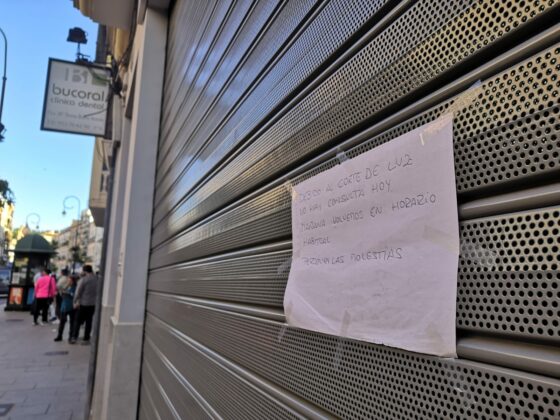 B1
bucoral
clínica dental
DEBIDO AL CORTE DE LUZ
NO HAY CONSULTA HOY.
MAÑANA VOLVEMOS EN HORARIO
HABITUAL
PERDONEN LAS MOLESTIAS